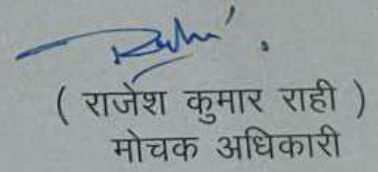 ( राजेश कुमार राही )
मोचक अधिकारी